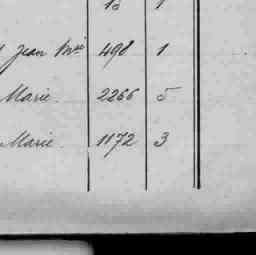 13 1
Jean Mie 498 1
Marie. 2266 5
Marie. 1172 3